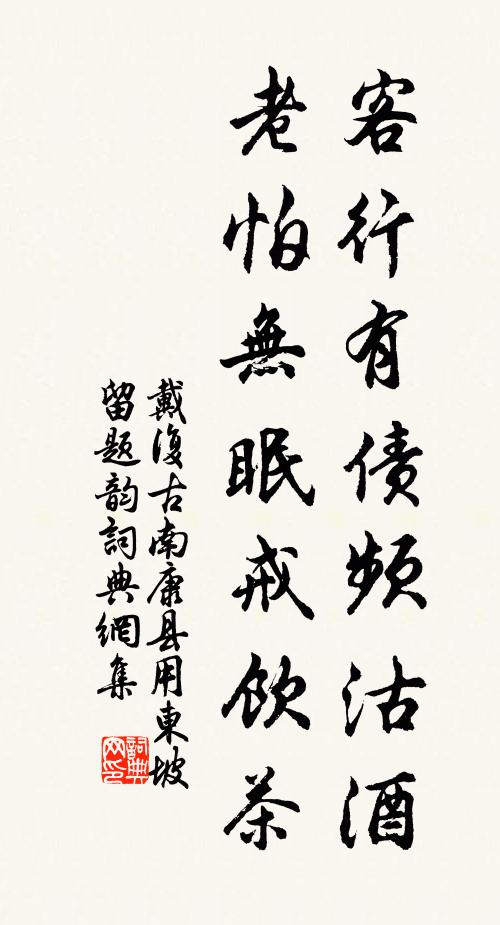 客行有债頻沽酒
老怕無眠戒飲茶
戴復古南康县用東坡
留题韵詞典網集
詞典网印